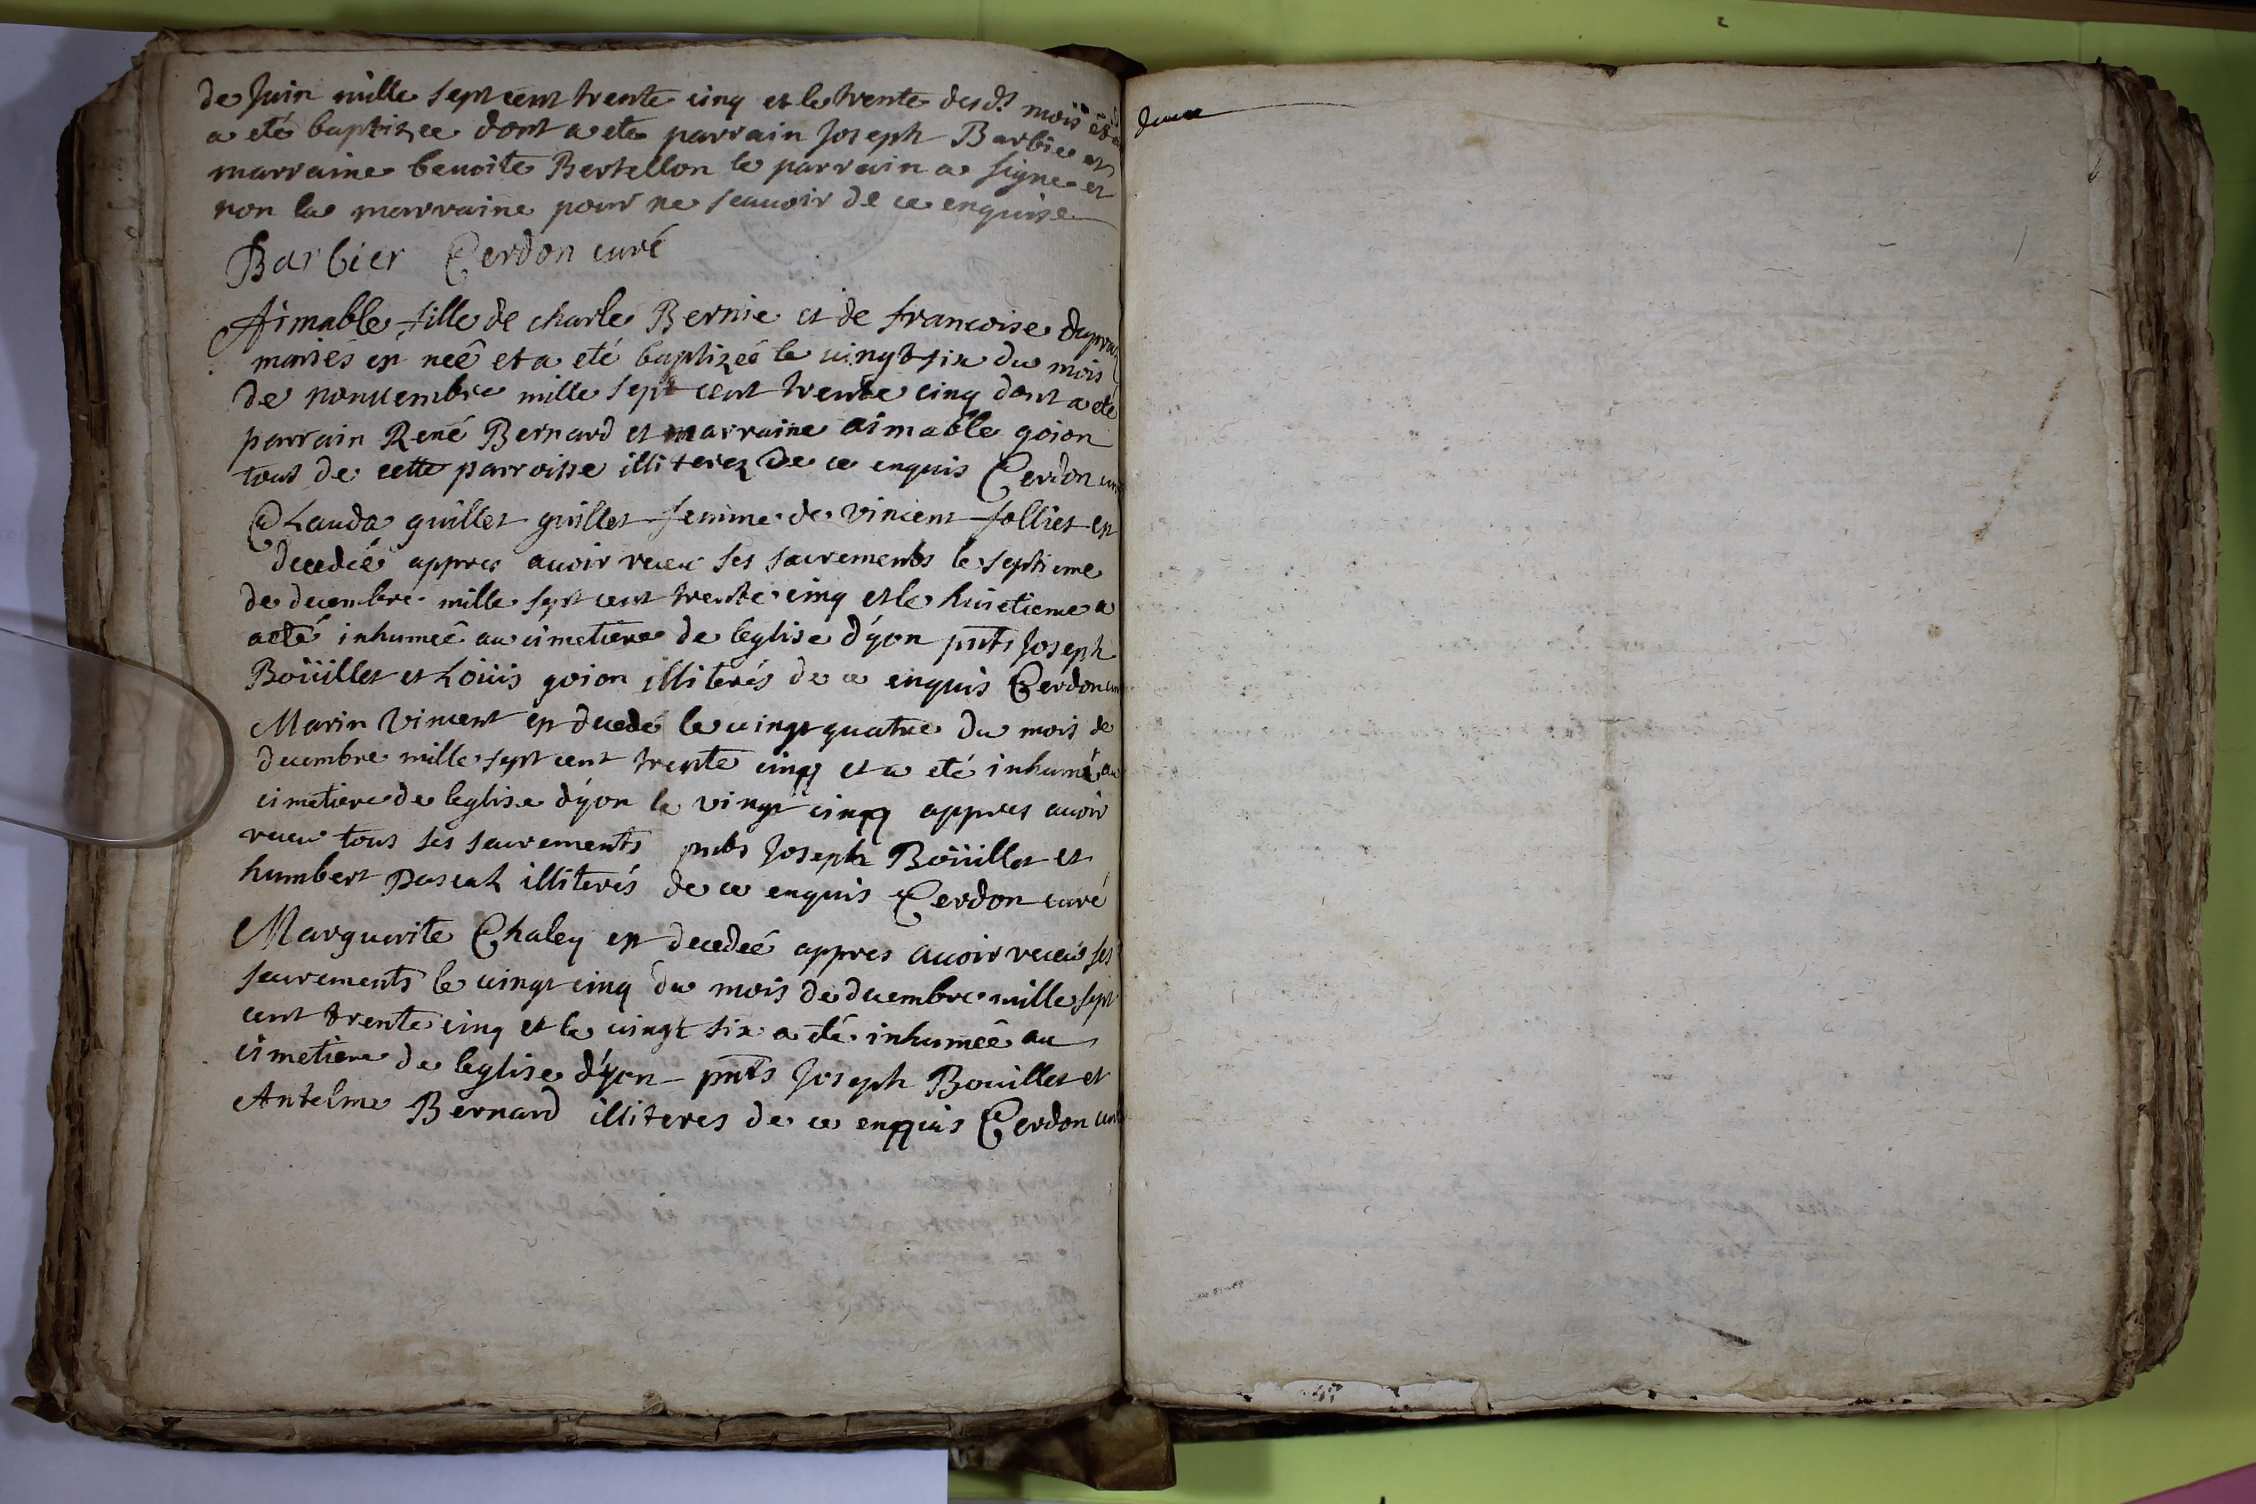 de Juin mille sept cent trente cinq et le trente desd.s mois et
a eté baptizee dont a ete parrain Joseph Barbier et
marraine benoite Bertellon le parrain a signe et
non la marraine pour ne scauoir de ce enquise
Barbier Cerdon curé
Aimable fille de charle Bernie et de francoise
mariés est neê et a eté baptizeé le uingt six du mois
de nonuembre mille sept cent trente cinq dont a eté
parrain René Bernard et marraine aimable goion
tous de cette parroisse illiterez de ce enquis Cerdon curé
Clauda guillet guillet femme de Vincent Jolliet est
decedeé appres auoir receu ses sacrements le septieme
de decembre mille sept cent trente cinq et le huictieme a
aeté inhumeê au cimetiere de leglise dÿon pnts Joseph
Boüillet et Loüis goion illiterés de ce enquis Cerdon curé
Marin Vincent est decedé le uingt quatre du mois de
decembre mille sept cent trente cinq et a eté inhumé au
cimetiere de leglise dÿon le vingt cinq appres auoir
receu tous ses sacrements pnts Joseph Boüillet et
humbert Pascal illiterés de ce enquis Cerdon curé
Marguerite Chaley est decedeé appres auoir receu ses
sacrements le uingt cinq du mois de decembre mille sept
cent trente cinq et le uingt six a eté inhumeê au
cimetiere de leglise dÿon pnts Joseph Bouillet et
Antelme Bernard illiteres de ce enquis Cerdon curé